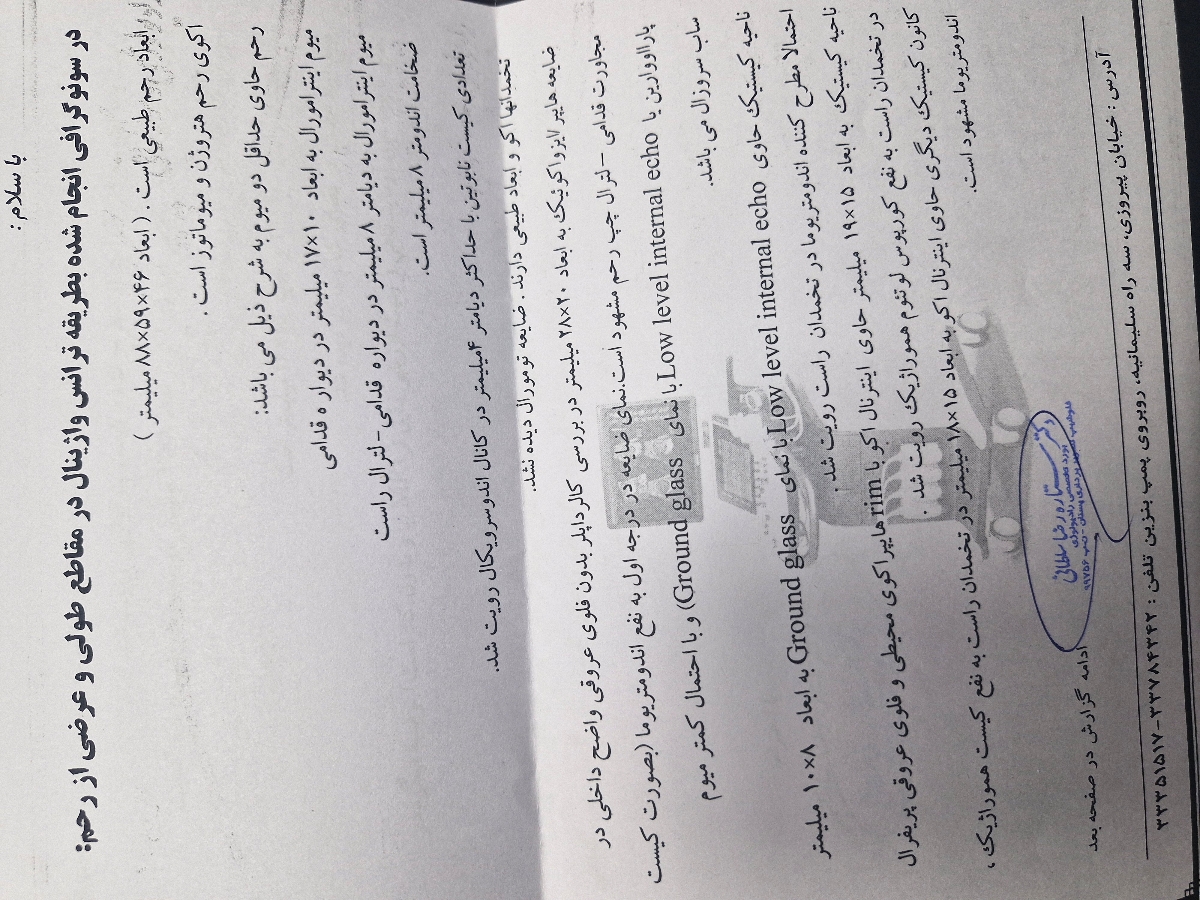 با سلام :
در سونوگرافی انجام شده بطریقه ترانس واژینال در مقاطع طولی و عرضی از رحم:
ابعاد رحم طبیعی است . ( ابعاد ۴۶×۵۹×۸۸ میلیمتر )
اکوی رحم هتروژن و میوماتوز است.
رحم حاوی حداقل دو میوم به شرح ذیل می باشد:
میوم اینترامورال به ابعاد ۱۰×۱۷ میلیمتر در دیواره قدامی
میوم اینترامورال به دیامتر ۸ میلیمتر در دیواره قدامی-لترال راست
ضخامت اندومتر ۸ میلیمتر است.
تعدادی کیست نابوتین با حداکثر دیامتر ۴میلیمتر در کانال اندوسرویکال رویت شد.
تخمدانها اکو و ابعاد طبیعی دارند . ضایعه تومورال دیده نشد.
ضایعه هایپر/ایزواکوئیک به ابعاد ۲۰×۲۸ میلیمتر در بررسی کالرداپلر بدون فلوی عروقی واضح داخلی در
مجاورت قدامی -لترال چپ رحم مشهود است.نمای ضایعه در درجه اول به نفع اندومتریوما (بصورت کیست
پارااوارین با Low level internal echo با نمای Ground glass) و با احتمال کمتر میوم
ساب سروزال می باشد.
ناحیه کیستیک حاوی Low level internal echo با نمای Ground glass به ابعاد ۸×۱۰ میلیمتر
احتمالا مطرح کننده اندومتریوما در تخمدان راست رویت شد .
ناحیه کیستیک به ابعاد ۱۵×۱۹ میلیمتر حاوی اینترنال اکو با rim هایپراکوی محیطی و فلوی عروقی پریفرال
در تخمدان راست به نفع کورپوس لوتئوم هموراژیک رویت شد .
کانون کیستیک دیگری حاوی اینترنال اکو به ابعاد ۱۵×۱۸ میلیمتر در تخمدان راست به نفع کیست هموراژیک ،
اندومتریوما مشهود است.
دکتر ستاره رضا سلطانی
بورد تخصصی رادیولوژی
ادامه گزارش در صفحه بعد
آدرس : خیابان پیروزی، سه راه سلیمانیه، روبروی پمپ بنزین تلفن : ۳۳۷۸۴۳۴۲-۳۳۳۵۱۵۱۷